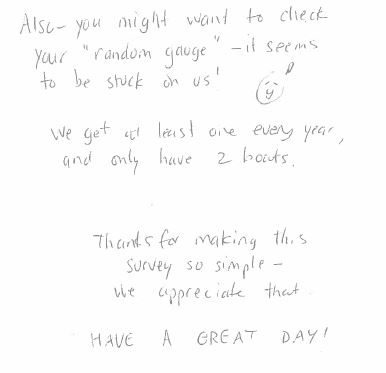 Also- you might want to check
your "random gauge" - it seems
to be stuck on us!
We get at least one every year,
and only have 2 boats.
Thanks for making this
survey so simple -
We appreciate that.
HAVE A GREAT DAY!